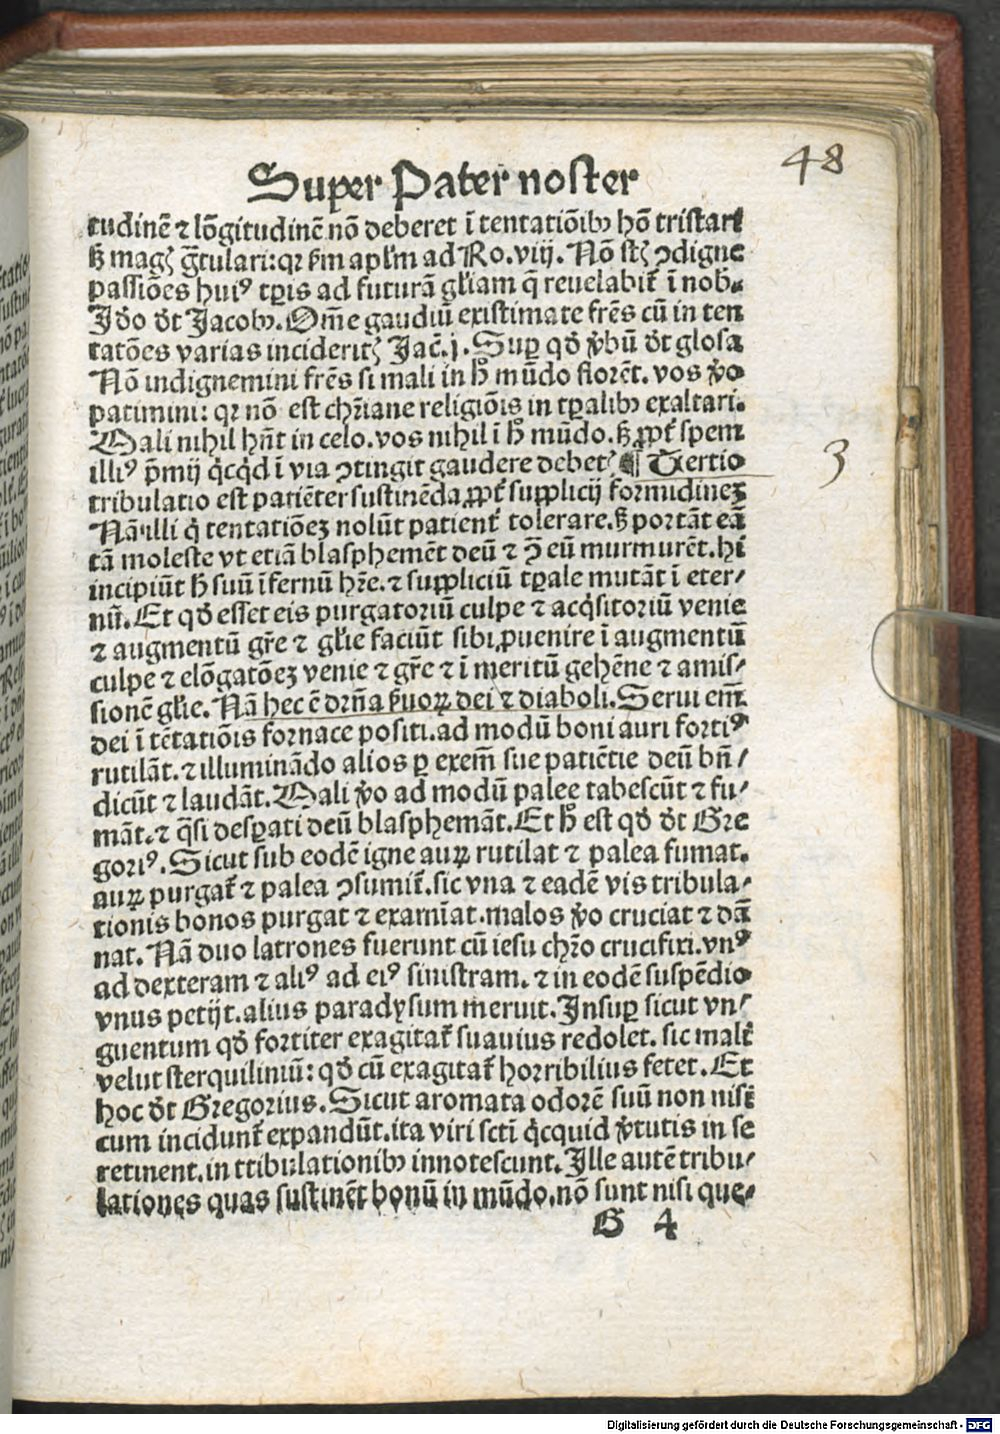 48
Super Pater noster
tudinē ⁊ lō̄gitudinē nō deberet ī tentatiōibꝫ hō tristari
sꝫ magꝭ gͣtulari: qꝛ ẜm apl̄m ad Ro. viij. Nō st̄ꝭ ꝯdigne
passiōes huiꝰ tꝑis ad futurā gl̄iam q̄ reuelabit᷑ ī nob.
Jdo d̄t Jacobꝫ. Om̄e gaudiū existimate fr̄es cū in ten
tatōes varias inciderit̄ꝭ Jac̄. j. Suꝑ qd̄ v̄bū d̄t glosa
Nō indignemini fr̄es si mali in hͦ mūdo florēt. vos v̄o
patimini: qꝛ nō est chr̄iane religiōis in tꝑalibꝫ exaltari.
Mali nihil hn̄t in celo. vos nihil ī hͦ mūdo. sꝫ ꝓpt᷑ spem
illiꝰ p̄mij q̇cq̇d ī via ꝯtingit gaudere debetꝭ ¶ Tertio
3
tribulatio est patiēter sustinēda, ꝓpt᷑ supplicij formidineꝫ
Nā illi q̇ tentatiōeꝫ nolūt patient᷑ tolerare. sꝫ portāt eā
tā moleste vt etiā blasphemēt deū ⁊ ꝯ̄ eū murmurēt. hi
incipiūt hͦ suū īfernū hr̄e. ⁊ suppliciū tꝑale mutāt ī eter⸗
nū. Et qd̄ esset eis purgatoriū culpe ⁊ acq̇sitoriū venie
⁊ augmentū gr̄e ⁊ gl̄ie faciūt sibi, ꝓuenire ī augmentū
culpe ⁊ elōgatōeꝫ venie ⁊ gr̄e ⁊ ī meritū gehēne ⁊ amis⸗
sionē gl̄ie. Nā hec ē drn̄a ẜuoꝝ dei ⁊ diaboli. Serui em̄
dei ī tētatiōis fornace positi. ad modū boni auri fortiꝰ
rutilāt. ⁊ illuminādo alios ꝑ exem̄ sue patiētie deū bn̄⸗
dicūt ⁊ laudāt. Mali v̄o ad modū palee tabescūt ⁊ fu⸗
māt. ⁊ q̄si desꝑati deū blasphemāt. Et hͦ est qd̄ d̄t Gre
goriꝰ. Sicut sub eodē igne auꝝ rutilat ⁊ palea fumat.
auꝝ purgat᷑ ⁊ palea ꝯsumit᷑. sic vna ⁊ eadē vis tribula⸗
tionis bonos purgat ⁊ examīat. malos v̄o cruciat ⁊ dā
nat. Nā duo latrones fuerunt cū iesu chr̄o crucifixi. vnꝰ
ad dexteram ⁊ aliꝰ ad eiꝰ sinistram. ⁊ in eodē suspēdio
vnus petijt. alius paradysum meruit. Insuꝑ sicut vn⸗
guentum qd̄ fortiter exagitat᷑ suauius redolet. sic malꝰ
velut sterquiliniū: qd̄ cū exagitat᷑ horribilius fetet. Et
hoc d̄t Gregorius. Sicut aromata odorē suū non nisi
cum incidunt᷑ expandūt. ita viri sct̄i q̇cquid v̄tutis in se
retinent. in ttibulationibꝫ innotescunt. Ille autē tribu⸗
lationes quas sustinēt bonū in mūdo. nō sunt nisi que⸗
G 4
Digitalisierung gefördert durch die Deutsche Forschungsgemeinschaft - DFG